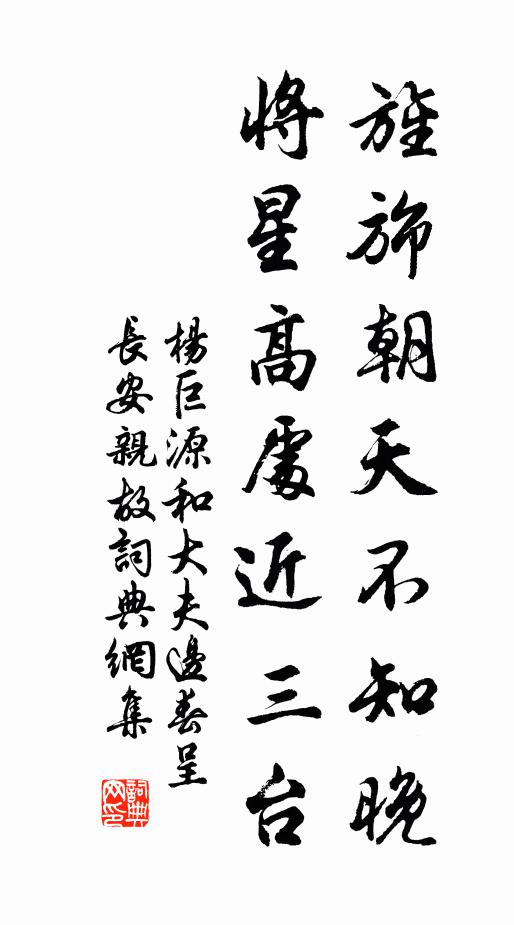 旌旆朝天不知晚
將星高處近三台
楊巨源和大夫邊春呈
長安親故詞典網集
詞典網印